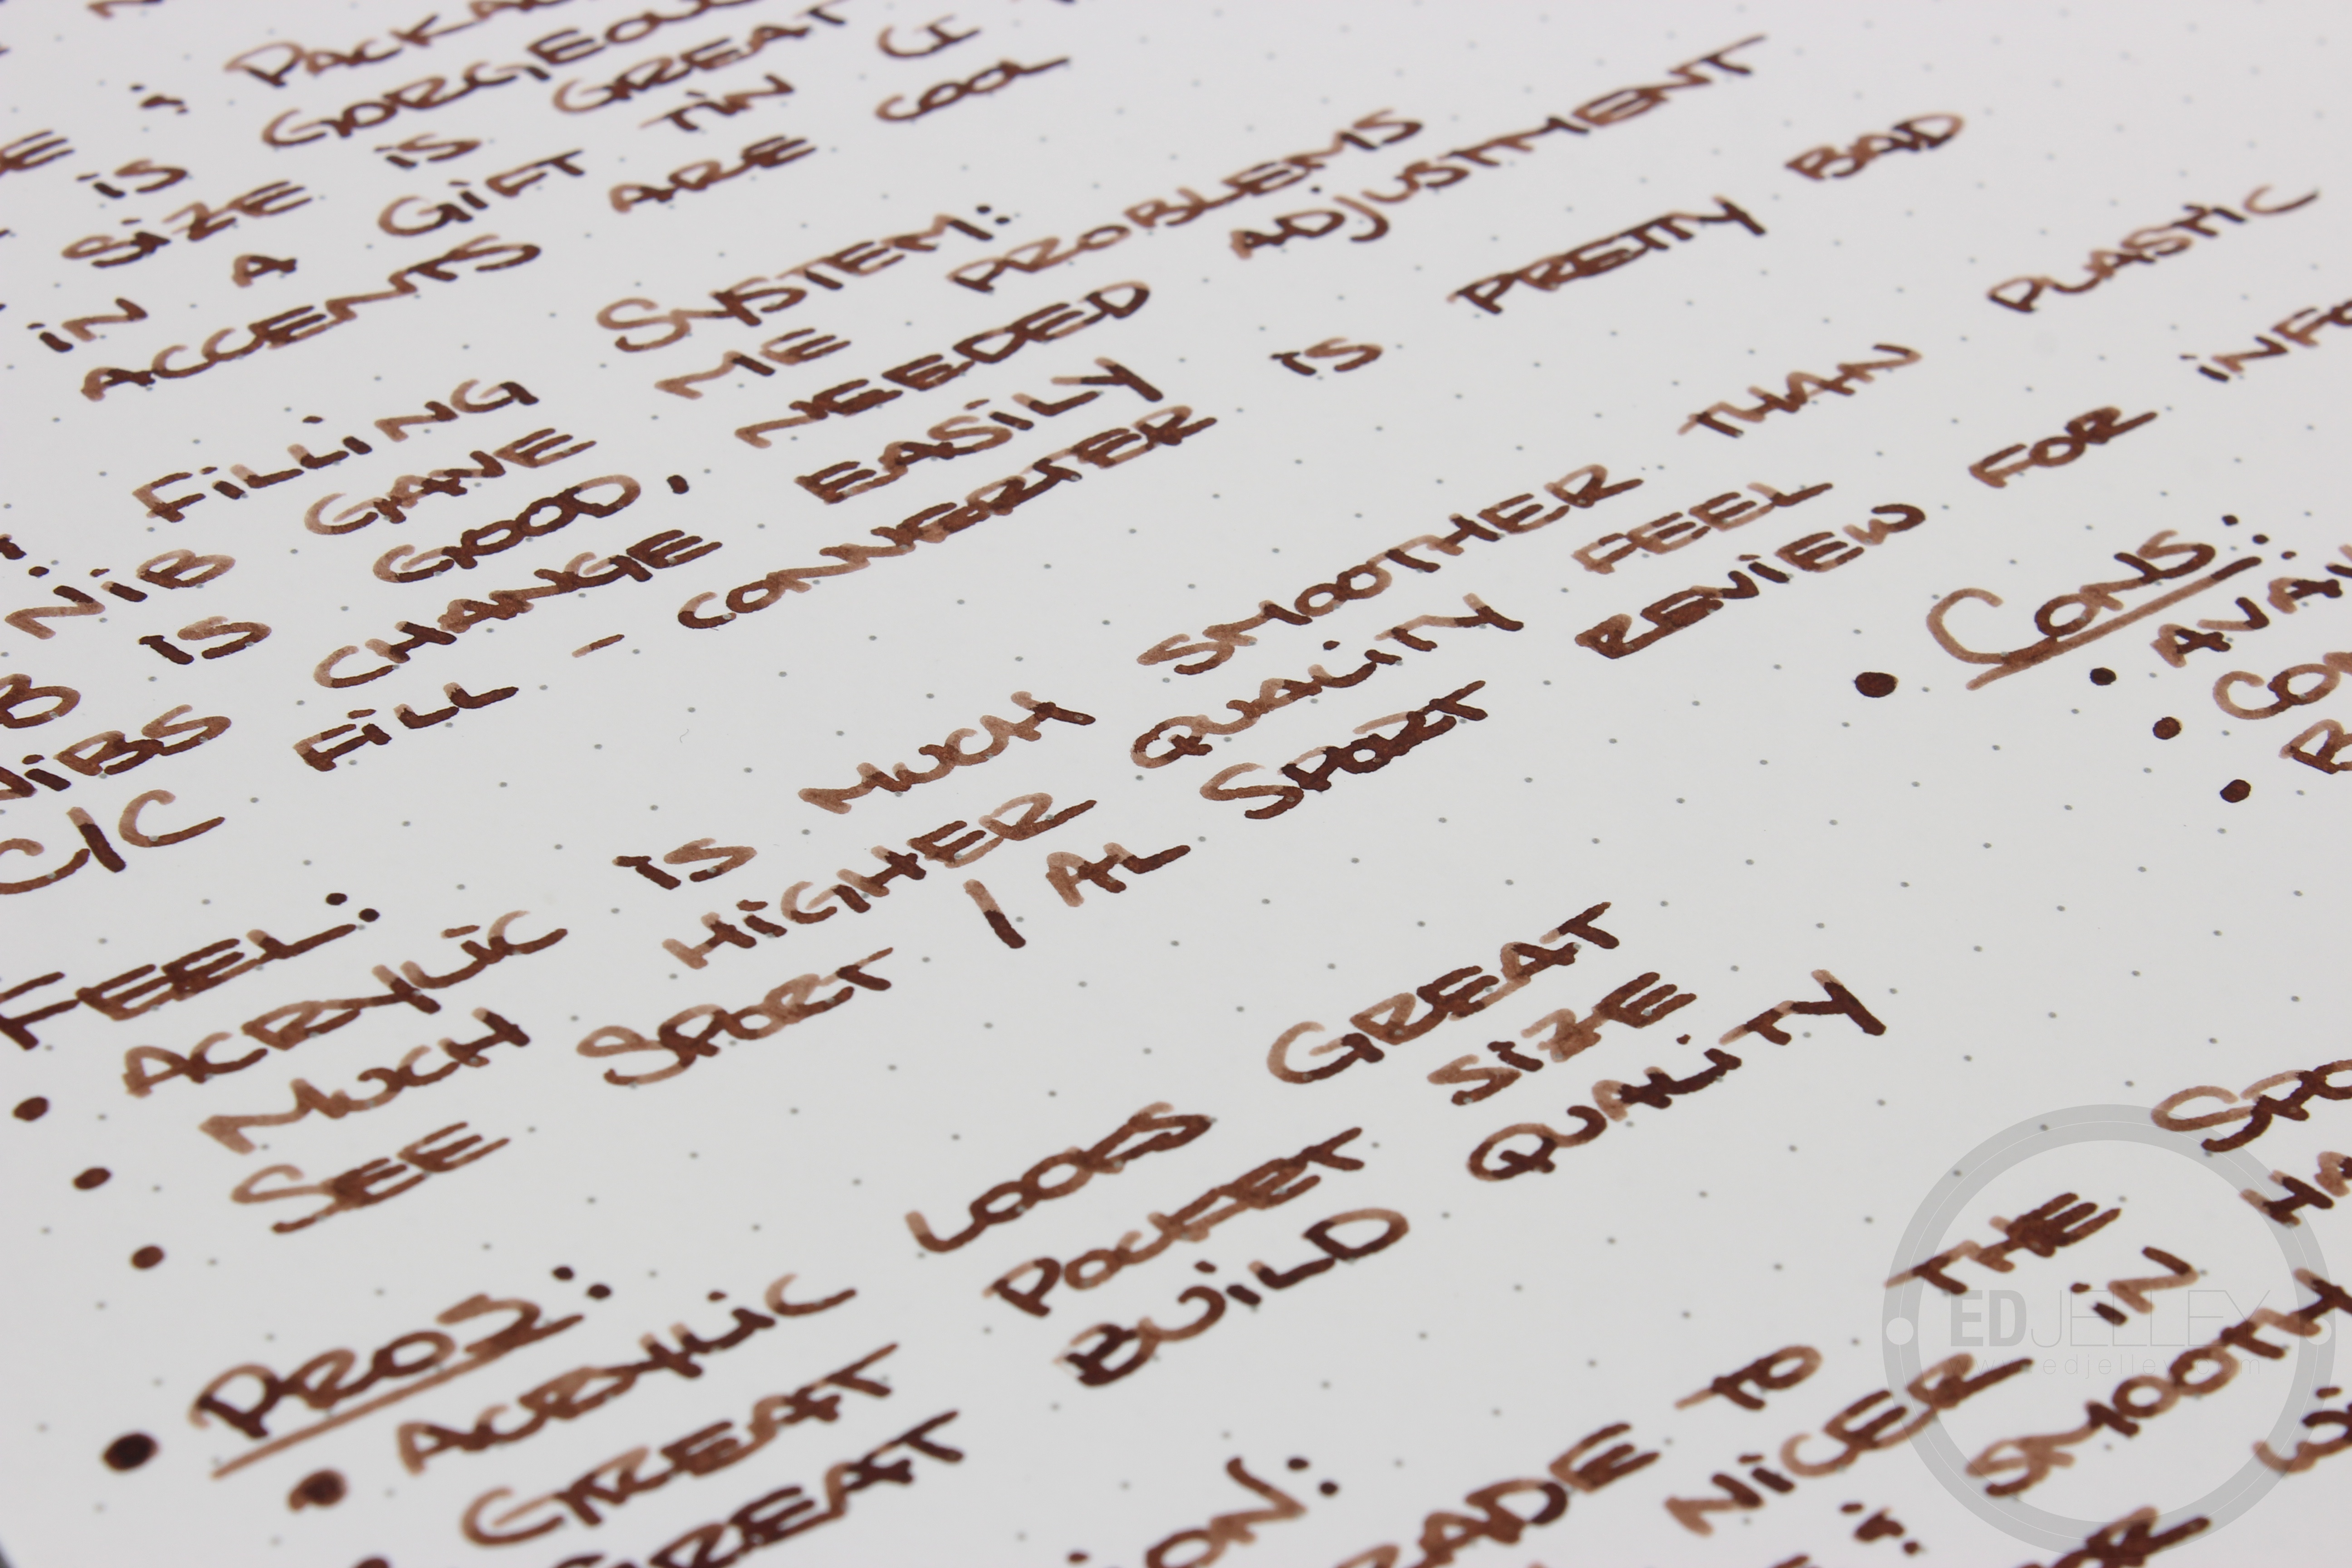 PACKA
iS GORGEOU
SiZE iS GREAT
iN A GiFT TiN
ACCENTS ARE COOL
FiLLiNG SYSTEM:
NiB GAVE ME PROBLEMS
IS GOOD, NEEDED ADJUSTMENT
NiBS CHANGE EASiLY
C/C FiLL - CONVERTER IS PRETTY BAD
FEEL:
• ACRYLiC IS MUCH SMOOTHER THAN PLASTiC
• MUCH HiGHER QUALiTY FEEL
• SEE SPORT / AL SPORT REViEW FOR iNFO
• PROS:
• ACRYLiC LOOKS GREAT
GREAT POCKET SiZE
GREAT BUiLD QUALiTY
• CONS:
• AVA
• CO
• B
ON:
RADE TO THE SPO
NiCER iN HA
SMOOTH
EDJELLEY
www.edjelley.com